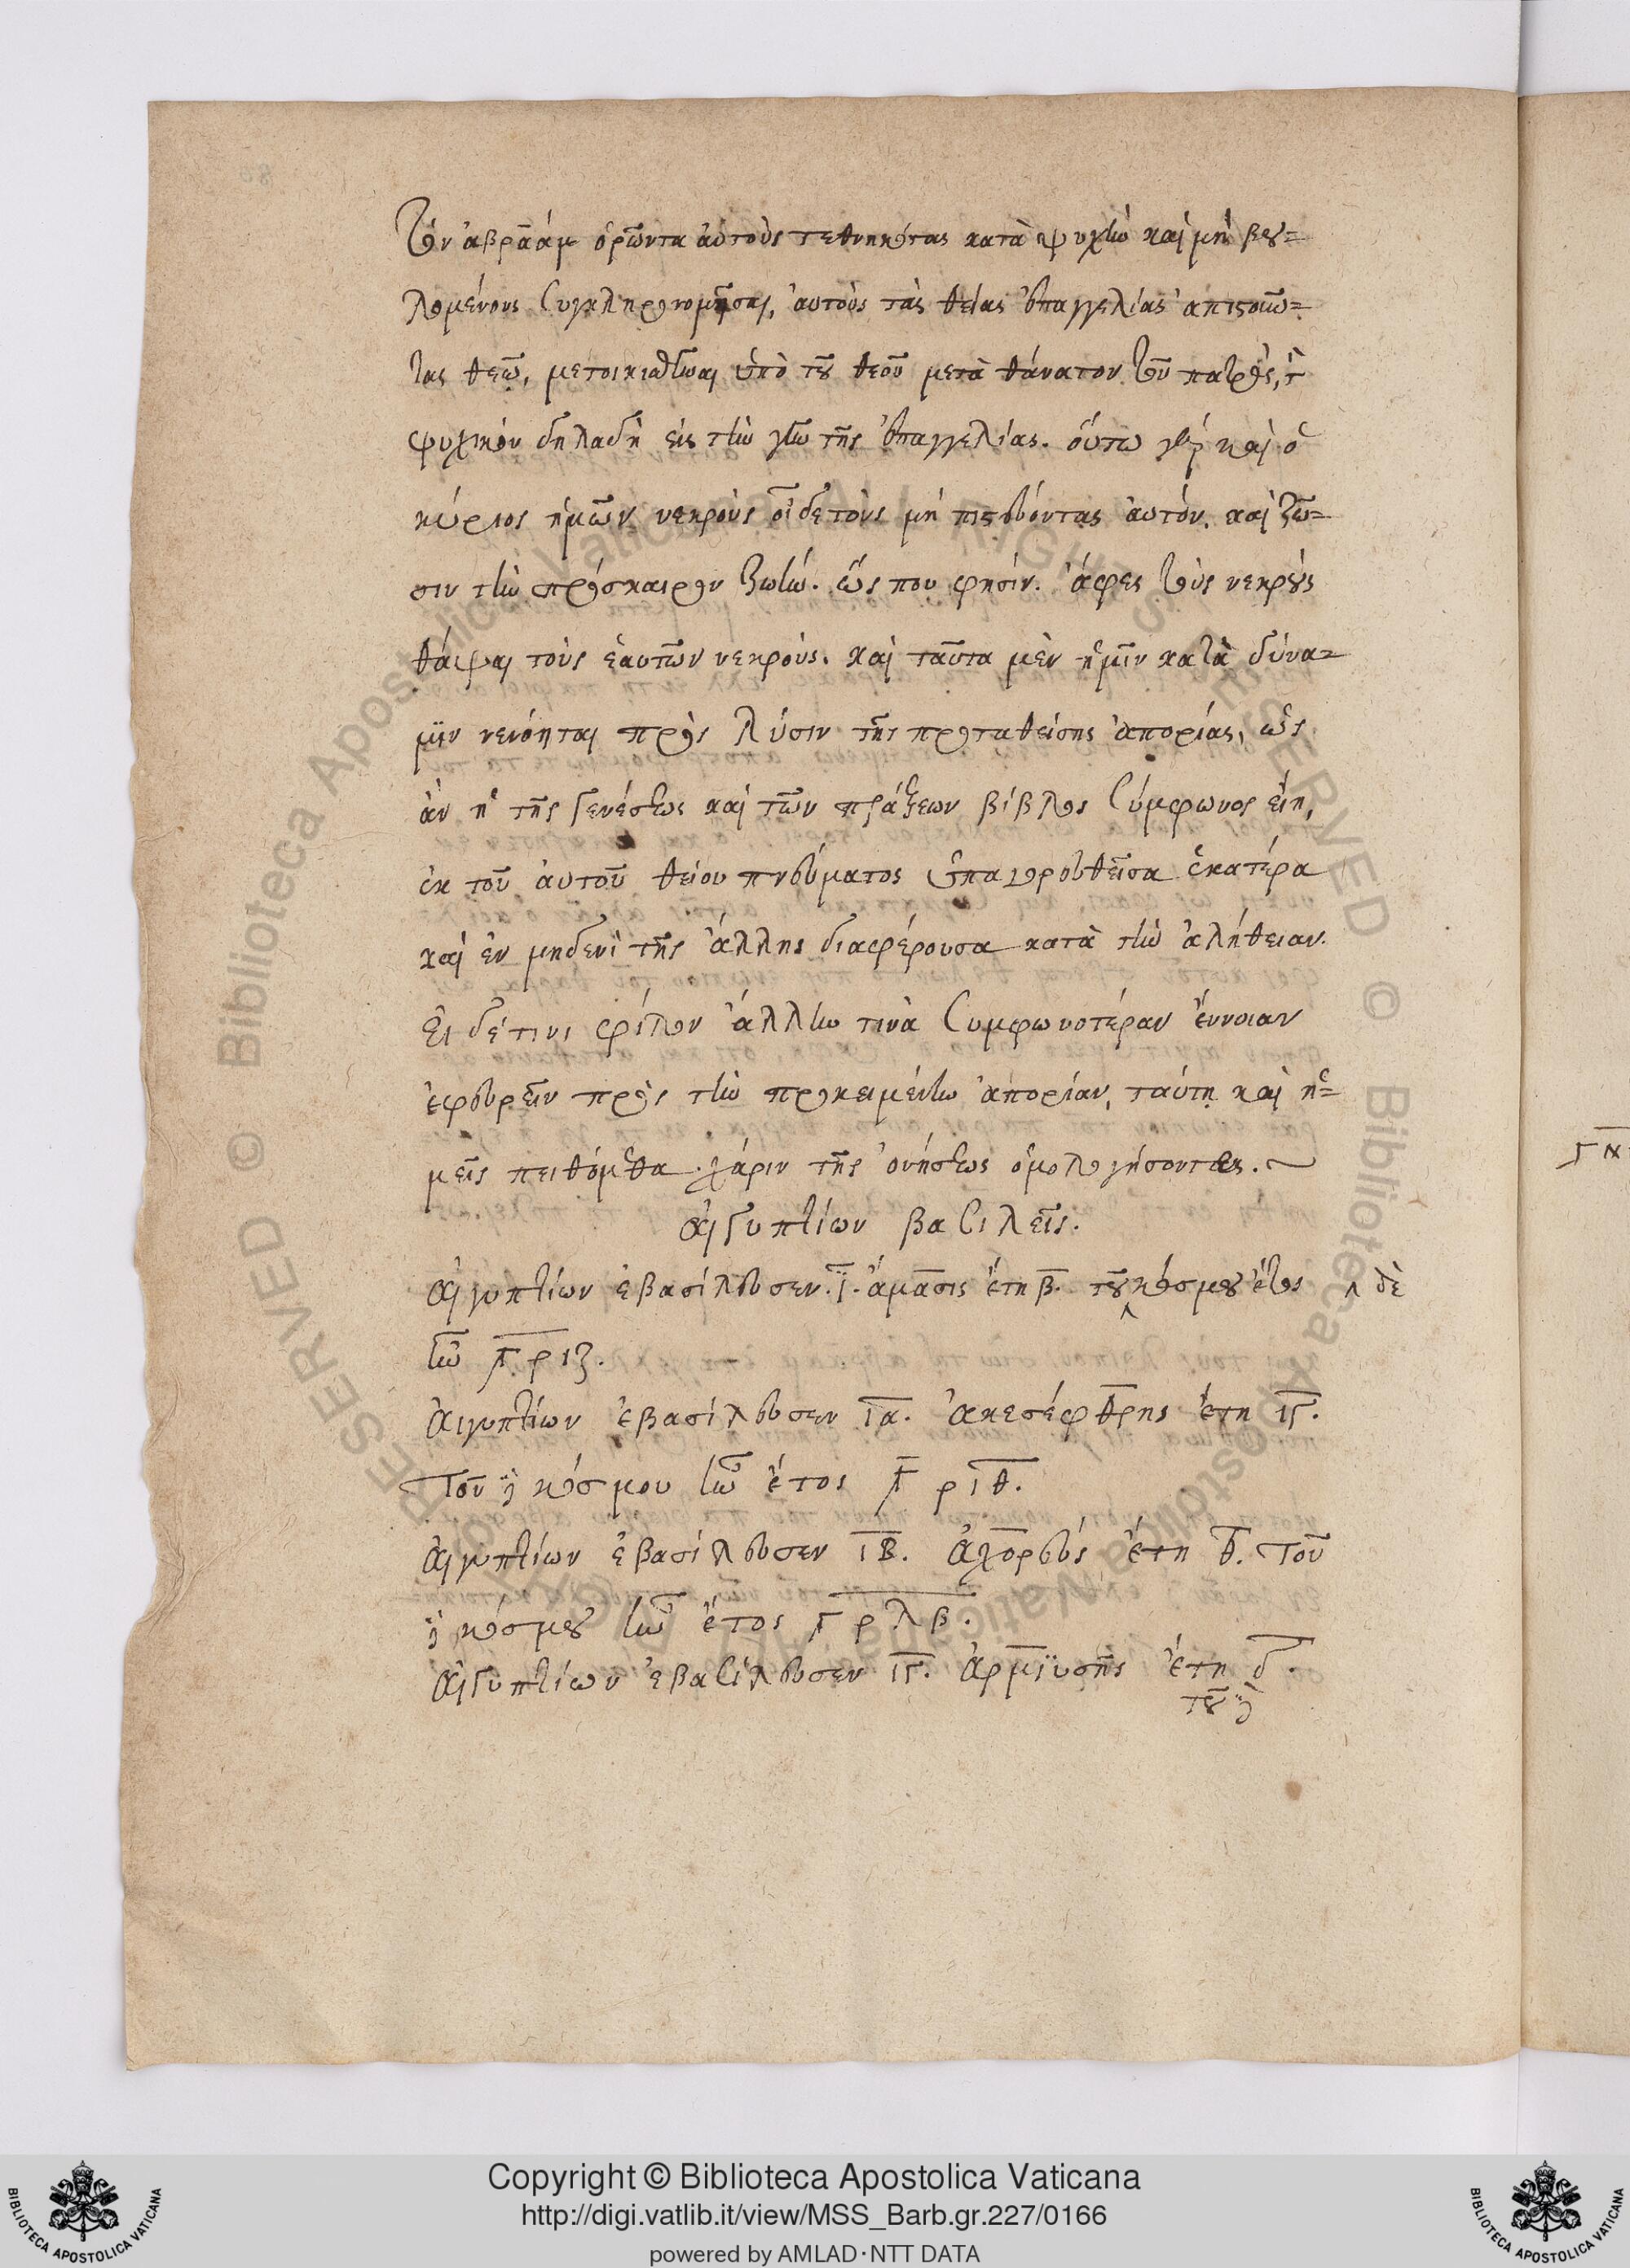 τὸν ἀβραὰμ ὁρῶντα αὐτοὺς τεθνηκότας κατὰ ψυχὴν καὶ μὴ βου=
λομένους συγκληρονομῆσαι, αὐτοὺς τὰς θείας ἐπαγγελίας ἀπιστοῦν=
τας θεῷ, μετοικισθῆναι ὑπὸ τοῦ θεοῦ μετὰ θάνατον τοῦ πατρὸς, τὸν
ψυχικὸν δηλαδὴ εἰς τὴν γῆν τῆς ἐπαγγελίας. οὕτω γὰρ καὶ ὁ
κύριος ἡμῶν νεκροὺς οἶδε τοὺς μὴ πιστεύοντας αὐτόν. καὶ ζῶ=
σιν τὴν πρόσκαιρον ζωήν. ὥς που φησίν. ἄφες τοὺς νεκροὺς
θάψαι τοὺς ἑαυτῶν νεκρούς. καὶ ταῦτα μὲν ἡμῖν κατὰ δύνα=
μιν νενόηται πρὸς λύσιν τῆς προταθείσης ἀπορίας, ὡς
ἂν ἡ τῆς γενέσεως καὶ τῶν πράξεων βίβλος σύμφωνος εἴη,
ἐκ τοῦ αὐτοῦ θείου πνεύματος ὑπαγορευθεῖσα ἑκατέρα
καὶ ἐν μηδενὶ τῆς ἄλλης διαφέρουσα κατὰ τὴν ἀλήθειαν.
Εἰ δέ τινι φίλον ἄλλην τινὰ συμφωνοτέραν ἔννοιαν
ἐφευρεῖν πρὸς τὴν προκειμένην ἀπορίαν, ταύτῃ καὶ ἡ=
μεῖς πειθόμεθα χάριν τῆς ὀνήσεως ὁμολογήσοντες.
αἰγυπτίων βασιλεῖς.
Αἰγυπτίων ἐβασίλευσεν. ϊ. ἄμασις ἔτη β. τοῦ κόσμου ἔτος ʌ δὲ
ἦν ͵γριζ.
Αἰγυπτίων ἐβασίλευσεν ια. ἀκεσέφθρης ἔτη ιγ.
τοῦ δὲ κόσμου ἦν ἔτος ͵γ ριθ.
Αἰγυπτίων ἐβασίλευσεν ιβ. ἀχορεύς ἔτη θ. τοῦ
δὲ κόσμου ἦν ἔτος ͵γρλβ.
Αἰγυπτίων ἐβασίλευσεν ιγ. ἀρμϊυσῆς ἔτη δ.
τοῦ δὲ
Copyright © Biblioteca Apostolica Vaticana
http://digi.vatlib.it/view/MSS_Barb.gr.227/0166
powered by AMLAD·NTT DATA
BIBLIOTECA APOSTOLICA VATICANA
BIBLIOTECA APOSTOLICA VATICANA